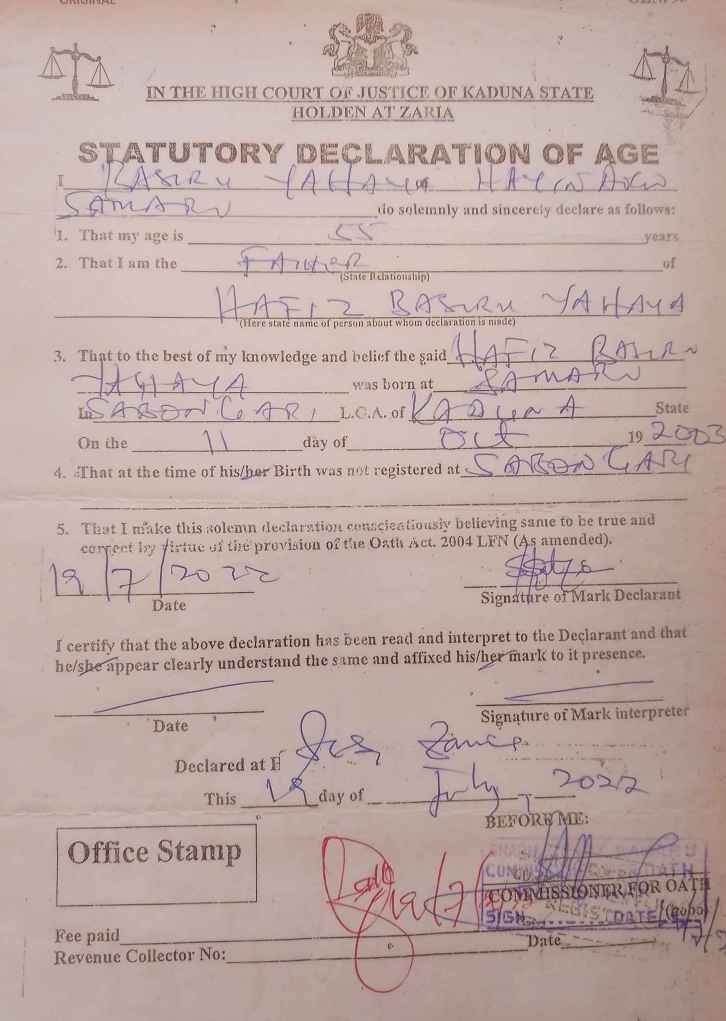 ORIGINAL
IN THE HIGH COURT OF JUSTICE OF KADUNA STATE
HOLDEN AT ZARIA
STATUTORY DECLARATION OF AGE
I BASIRU YAHAYA HAYIN
SAMARU do solemnly and sincerely declare as follows:
1. That my age is 55 years
2. That I am the FATHER of
(State Relationship)
HAFIZ BASIRU YAHAYA
(Here state name of person about whom declaration is made)
3. That to the best of my knowledge and belief the said HAFIZ BASIRU
YAHAYA was born at SAMARU
In SABON GARI L.G.A. of KADUNA State
On the 11 day of Oct 19 2003
4. That at the time of his/her Birth was not registered at SABON GARI
5. That I make this solemn declaration conscientiously believing same to be true and
correct by virtue of the provision of the Oath Act. 2004 LFN (As amended).
19/7/2022
Date Signature of Mark Declarant
I certify that the above declaration has been read and interpret to the Declarant and that
he/she appear clearly understand the same and affixed his/her mark to it presence.
Date Signature of Mark interpreter
Declared at Zaria
This 19 day of July 2022
BEFORE ME:
Office Stamp
19/7/
COMMISSIONER FOR OATH
SIGN DATE
Fee paid Date
Revenue Collector No: